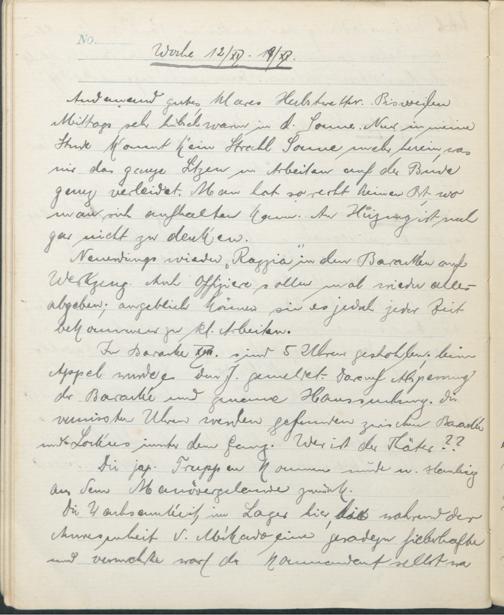 No.
Woche 12/XI - 19/XI.
Andauernd gutes, klares Herbstwetter. Bisweilen
Mittags sehr warm in d. Sonne. Nur in meine
Stube kommt kein Strahl Sonne mehr herein, was
mir das ganze Sitzen u. Arbeiten auf der Bude
ganz verleidet. Man hat so recht keinen Ort, wo
man sich aufhalten kann. An Heizung ist noch
gar nicht zu denken.
Neuerdings wieder „Razzia" in den Baracken auf
Werkzeug. Auch Offiziere sollen mal wieder alles
abgeben; angeblich können sie es jedoch jeder Zeit
bekommen zu kl. Arbeiten.
In Baracke sind 5 Uhren gestohlen. beim
Appell wurde es den J. gemeldet. Darauf Absperrung
der Baracke und genaue Haussuchung. Die
vermissten Uhren werden gefunden zwischen Baracke
und Lokus unter dem Gang. Wer ist der Täter??
Die jap. Truppen kommen müde u. staubig
aus dem Manövergelände zurück.
Die Wachsamkeit im Lager hier, während der
Anwesenheit d. Mikado, eine geradezu fieberhafte
und vermehrte war, der Kommandant selbst wo